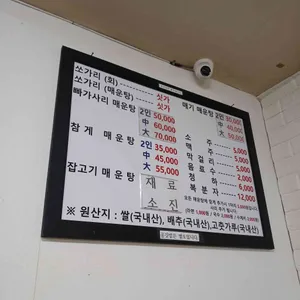 쏘가리 (회) -------- 싯가
쏘가리 (매운탕) ---- 싯가
빠가사리 매운탕 2인 50,000
中 60,000
大 70,000
참게 매운탕 2인 35,000
中 45,000
大 55,000
잡고기 매운탕 재료
소진
메기 매운탕 2인 30,000
中 40,000
大 50,000
소 주 5,000
맥 주 5,000
막 걸 리 5,000
음 료 수 2,000
청 하 5,000
복 분 자 12,000
※ 원산지 : 쌀(국내산), 배추(국내산), 고춧가루(국내산)